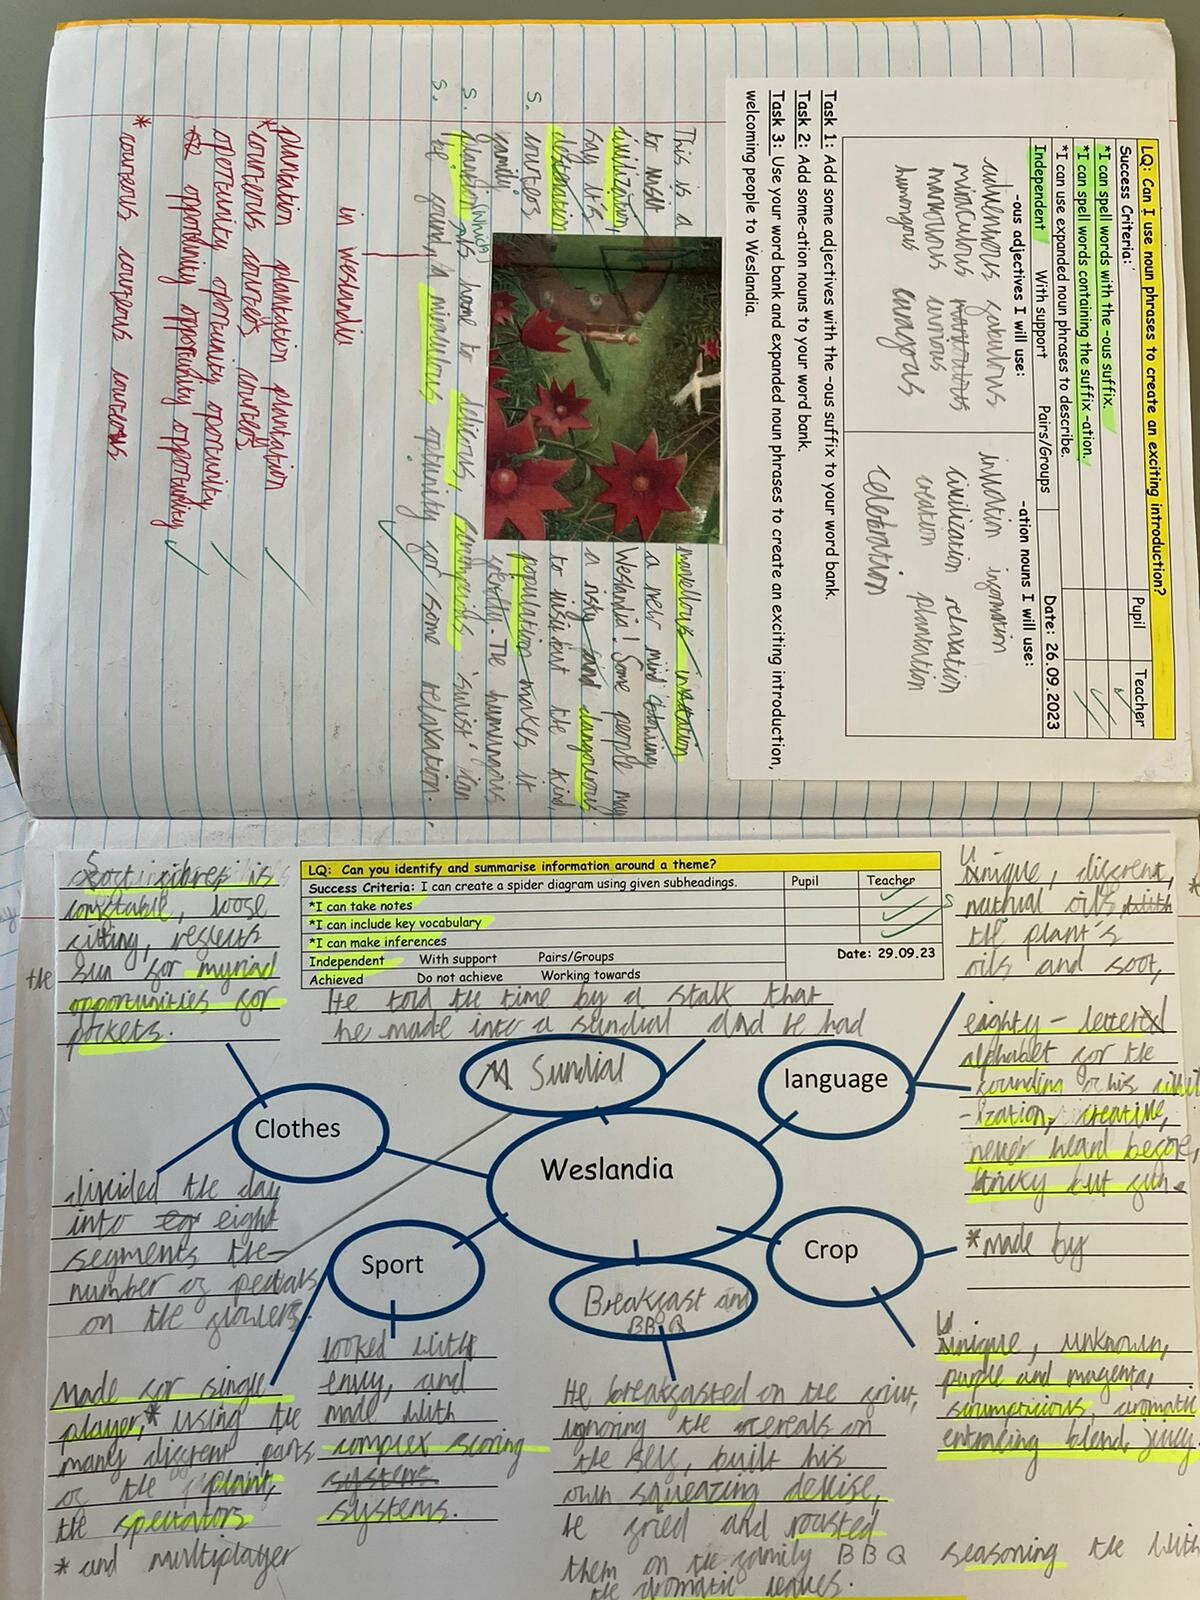 LQ: Can I use noun phrases to create an exciting introduction?
Success Criteria:
Pupil
Teacher
*I can spell words with the -ous suffix.
*I can spell words containing the suffix -ation.
*I can use expanded noun phrases to describe.
Independent With support Pairs/Groups
Date: 26.09.2023
-ous adjectives I will use:
-ation nouns I will use:
miraculous
humongous
information
civilization relaxation
creation plantation
celebration
Task 1: Add some adjectives with the -ous suffix to your word bank.
Task 2: Add some-ation nouns to your word bank.
Task 3: Use your word bank and expanded noun phrases to create an exciting introduction,
welcoming people to Weslandia.
This is a marvellous
to visit a new mind blowing
civilization, Weslandia! Some people may
say it's a risky and dangerous
to visit but the kind,
s. courteos population makes it
family. The humungous
s. which home to
s. miraculous for some relaxation.
in weslandia
plantation plantation plantation
*courteous
opportunity
opportunity opportunity opportunity
*courteous courteous courteous
LQ: Can you identify and summarise information around a theme?
Success Criteria: I can create a spider diagram using given subheadings.
Pupil
Teacher
*I can take notes
*I can include key vocabulary
*I can make inferences
Independent With support Pairs/Groups
Date: 29.09.23
Achieved Do not achieve Working towards
loose
fitting, reflects
the sun for myriad
opportunities for
pockets.
He told the time by a stalk that
he made into a sundial and he had
Unique, different,
oils
the plant's
oils and soot,
eighty-letterd
alphabet for the
founding of his civili
-ization, creative,
never heard before,
tricky but fun
Sundial
language
Clothes
Weslandia
Sport
Crop
Breakfast and
BBQ
divided the day
into eight
segments the
number of petals
on the flowers.
*made by
Made for single
player,* using the
many different parts
of the plant,
the spectators
* and multiplayer
looked with
envy, and
made with
complex scoring
systems.
He breakfasted on the fruit,
ignoring the cereals on
the self, built his
own squeazing devise,
he fried and roasted
them on the family BBQ
the aromatic leaves.
Unique, unknown,
purple and magenta,
scrumptious, aromatic
entracing blend, juicy.
seasoning the with